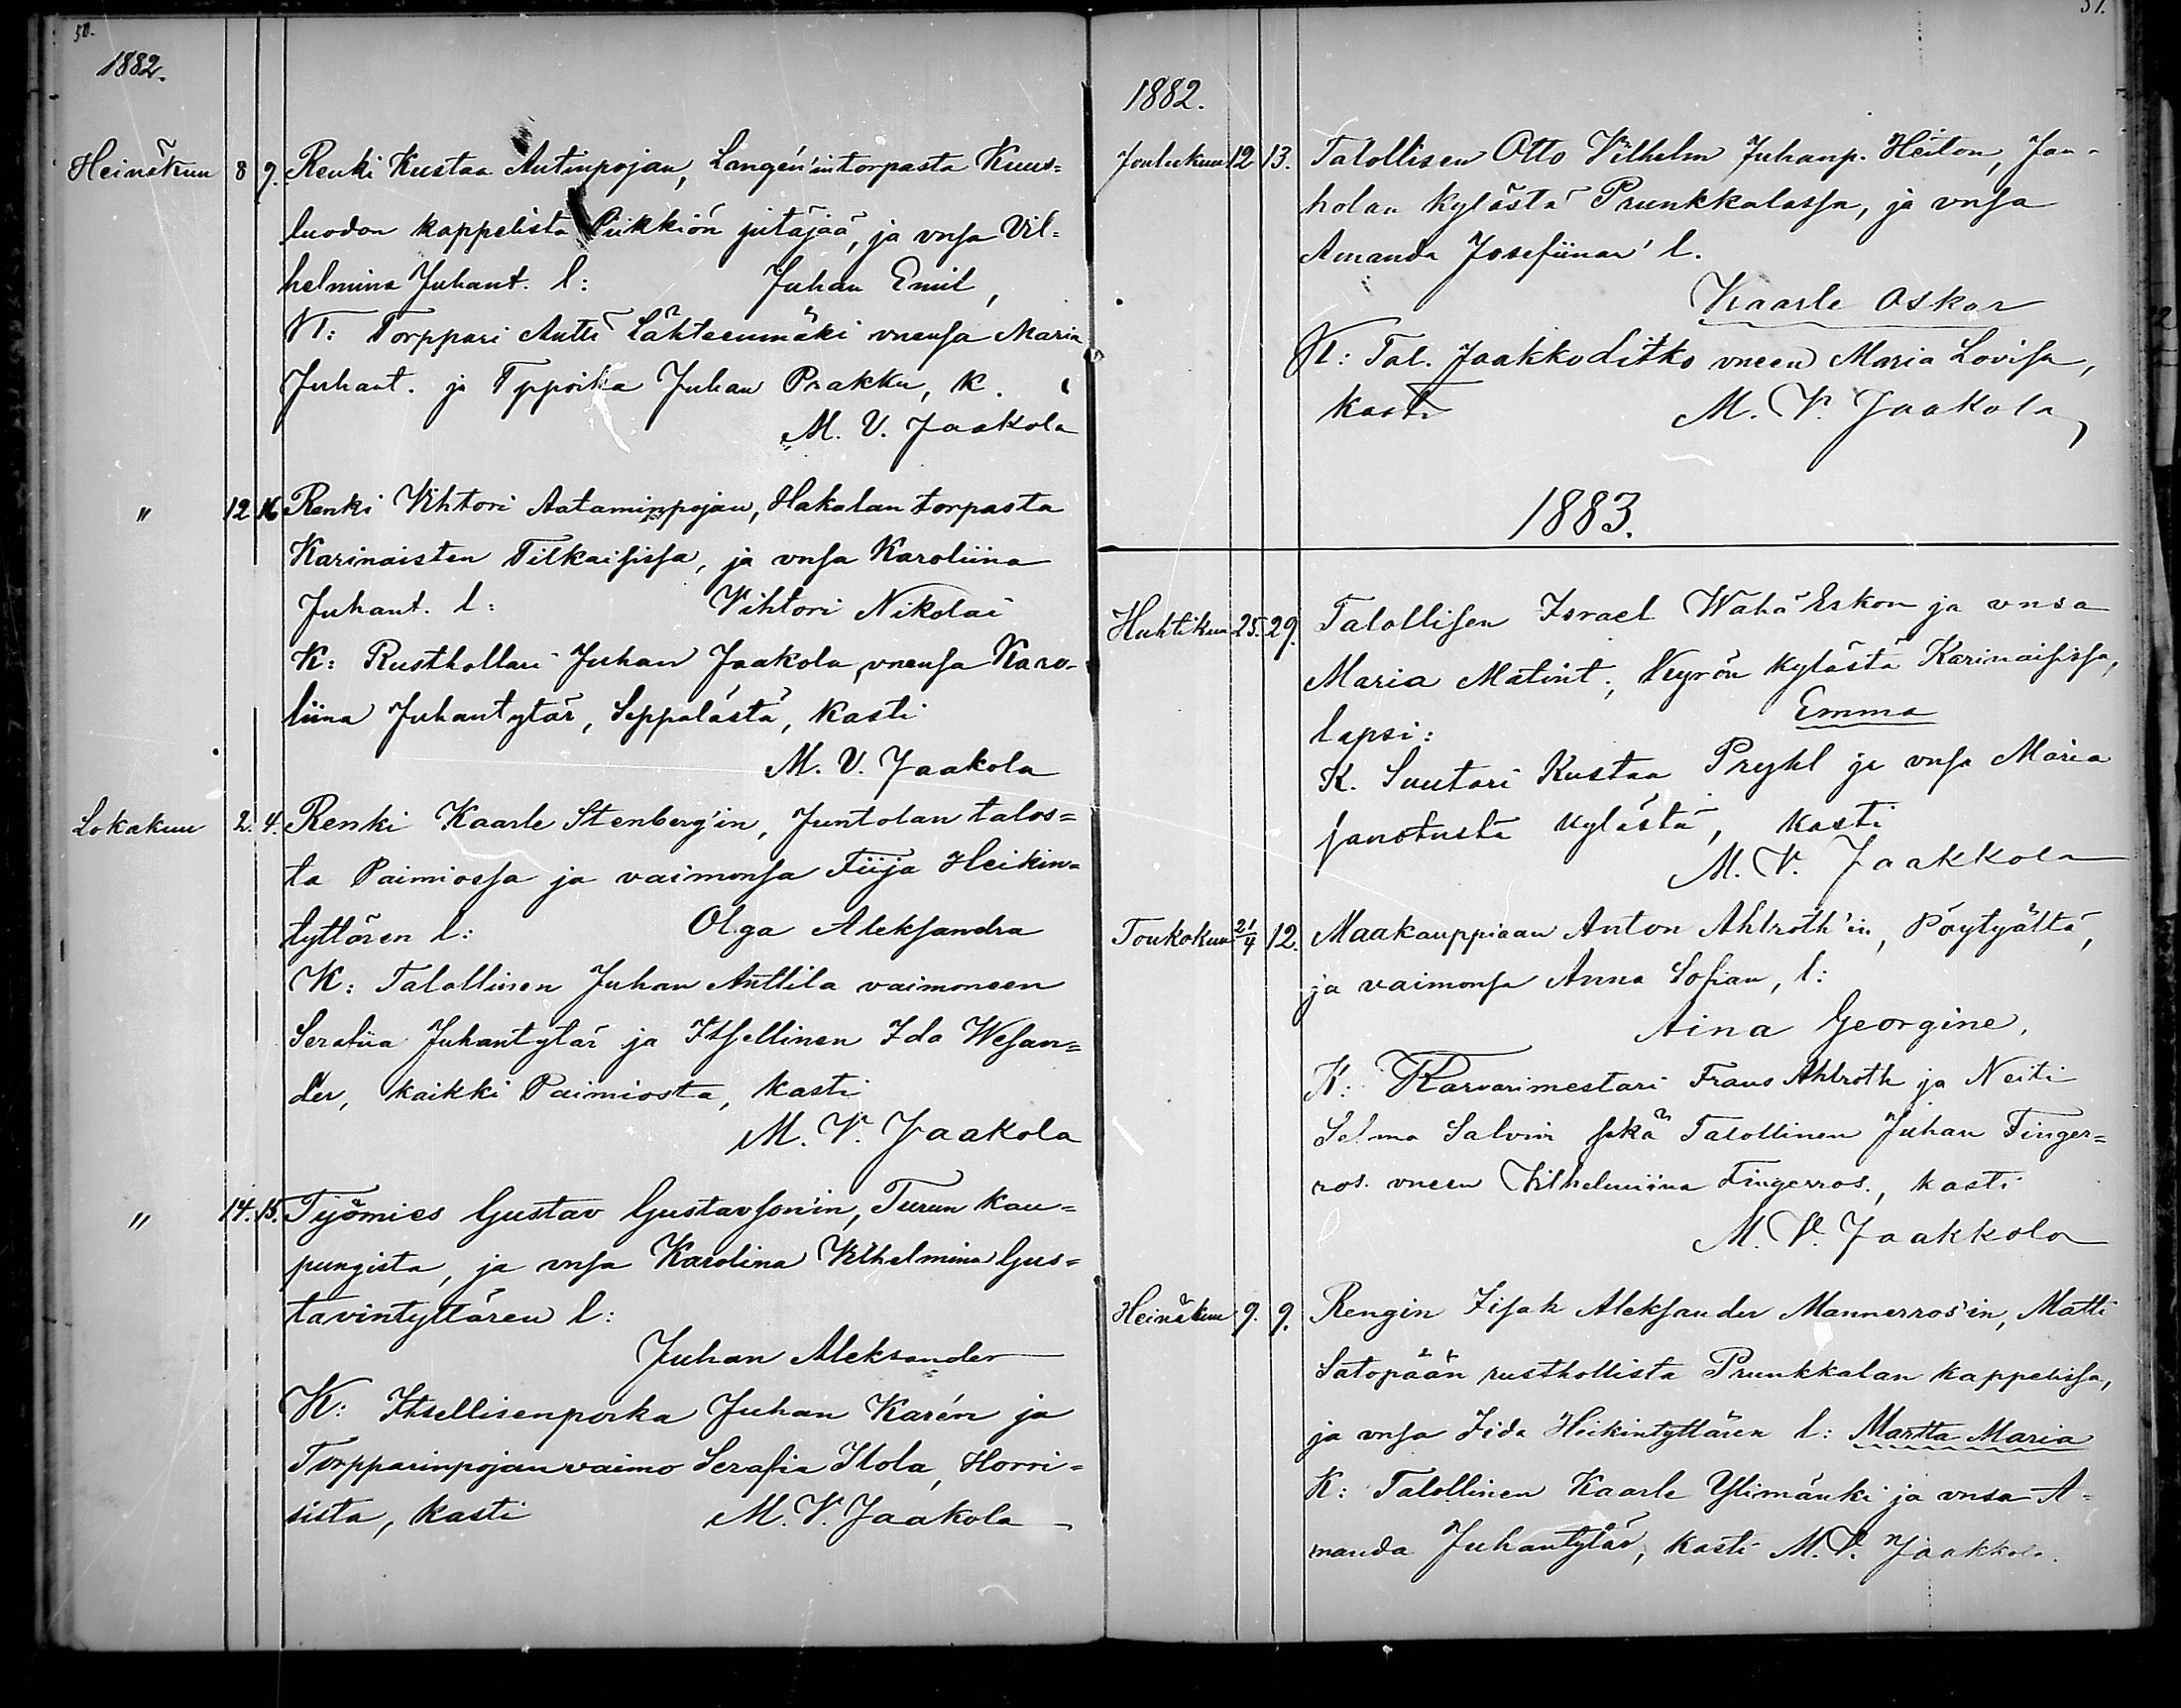 50.
1882.
Heinäkuu 8 9. Renki Kustaa Antinpojan, Langén'in torpasta Kuus=
luodon kappelista Piikkiön pitäjää, ja vnsa Vil=
helmina Juhant. l: Juhan Emil,
K: Torppari Antti Lähteenmäki vneensa Maria
Juhant. ja Tppoika Juhan Prakku, k.
M. V. Jaakola
" 12 16 Renki Vihtori Aataminpojan, Hakalan torpasta
Karinaisten Tilkaisissa, ja vnsa Karoliina
Juhant. l: Vihtori Nikolai
K: Rusthollari Juhan Jaakola vneensa Karo-
liina Juhantytär, Seppälästä, kasti
M. V. Jaakola
Lokakuu 2. 4. Renki Kaarle Stenberg'in, Juntolan talos=
ta Paimiossa ja vaimonsa Fiija Heikin=
tyttären l: Olga Aleksandra
K: Talollinen Juhan Anttila vaimoneen
Serafiia Juhantytär ja Itsellinen Ida Wesan=
der, kaikki Paimiosta, kasti
M. V. Jaakola
" 14. 15. Työmies Gustav Gustavson'in, Turun kau=
pungista, ja vnsa Karolina Vilhelmina Gus=
tavintyttären l:
Juhan Aleksander
K: Itsellisenpoika Juhan Karén ja
Torpparinpojan vaimo Serafia Ilola, Horri=
sista, kasti M. V. Jaakola
51.
1882.
Joulukuu 12 13. Talollisen Otto Vilhelm Juhanp. Heiton, Jan-
holan kylästä Prunkkalassa, ja vnsa
Amanda Josefiinan l.
Kaarle Oskar
K: Tal. Jaakko Litko vneen Maria Lovisa,
kasti M. V. Jaakola,
1883.
Huhtikuu 25. 29. Talollisen Israel Wähä Eskon ja vnsa
Maria Matint., Kyrön kylästä Karinaisissa,
lapsi: Emma
K. Suutari Kustaa Pryhl ja vnsa Maria
samotusta kylästä, kasti
M. V. Jaakkola
Toukokuu 21/4 12. Maakauppiaan Anton Ahlroth'in, Pöytyältä,
ja vaimonsa Anna Sofian, l:
Aina Georgine,
K: Karvarimestari Frans Ahlroth ja Neiti
Selma Salvin sekä Talollinen Juhan Finger=
ros. vneen Vilhelmiina Fingerros., kasti
M. V. Jaakkola
Heinäkuu 9. 9. Rengin Iisak Aleksander Mannerros'in, Matti
Satopään rusthollista Prunkkalan kappelissa,
ja vnsa Iida Heikintyttären l: Martta Maria
K: Talollinen Kaarle Ylimänki ja vnsa A=
manda Juhantytär, kasti M. V. Jaakkola.